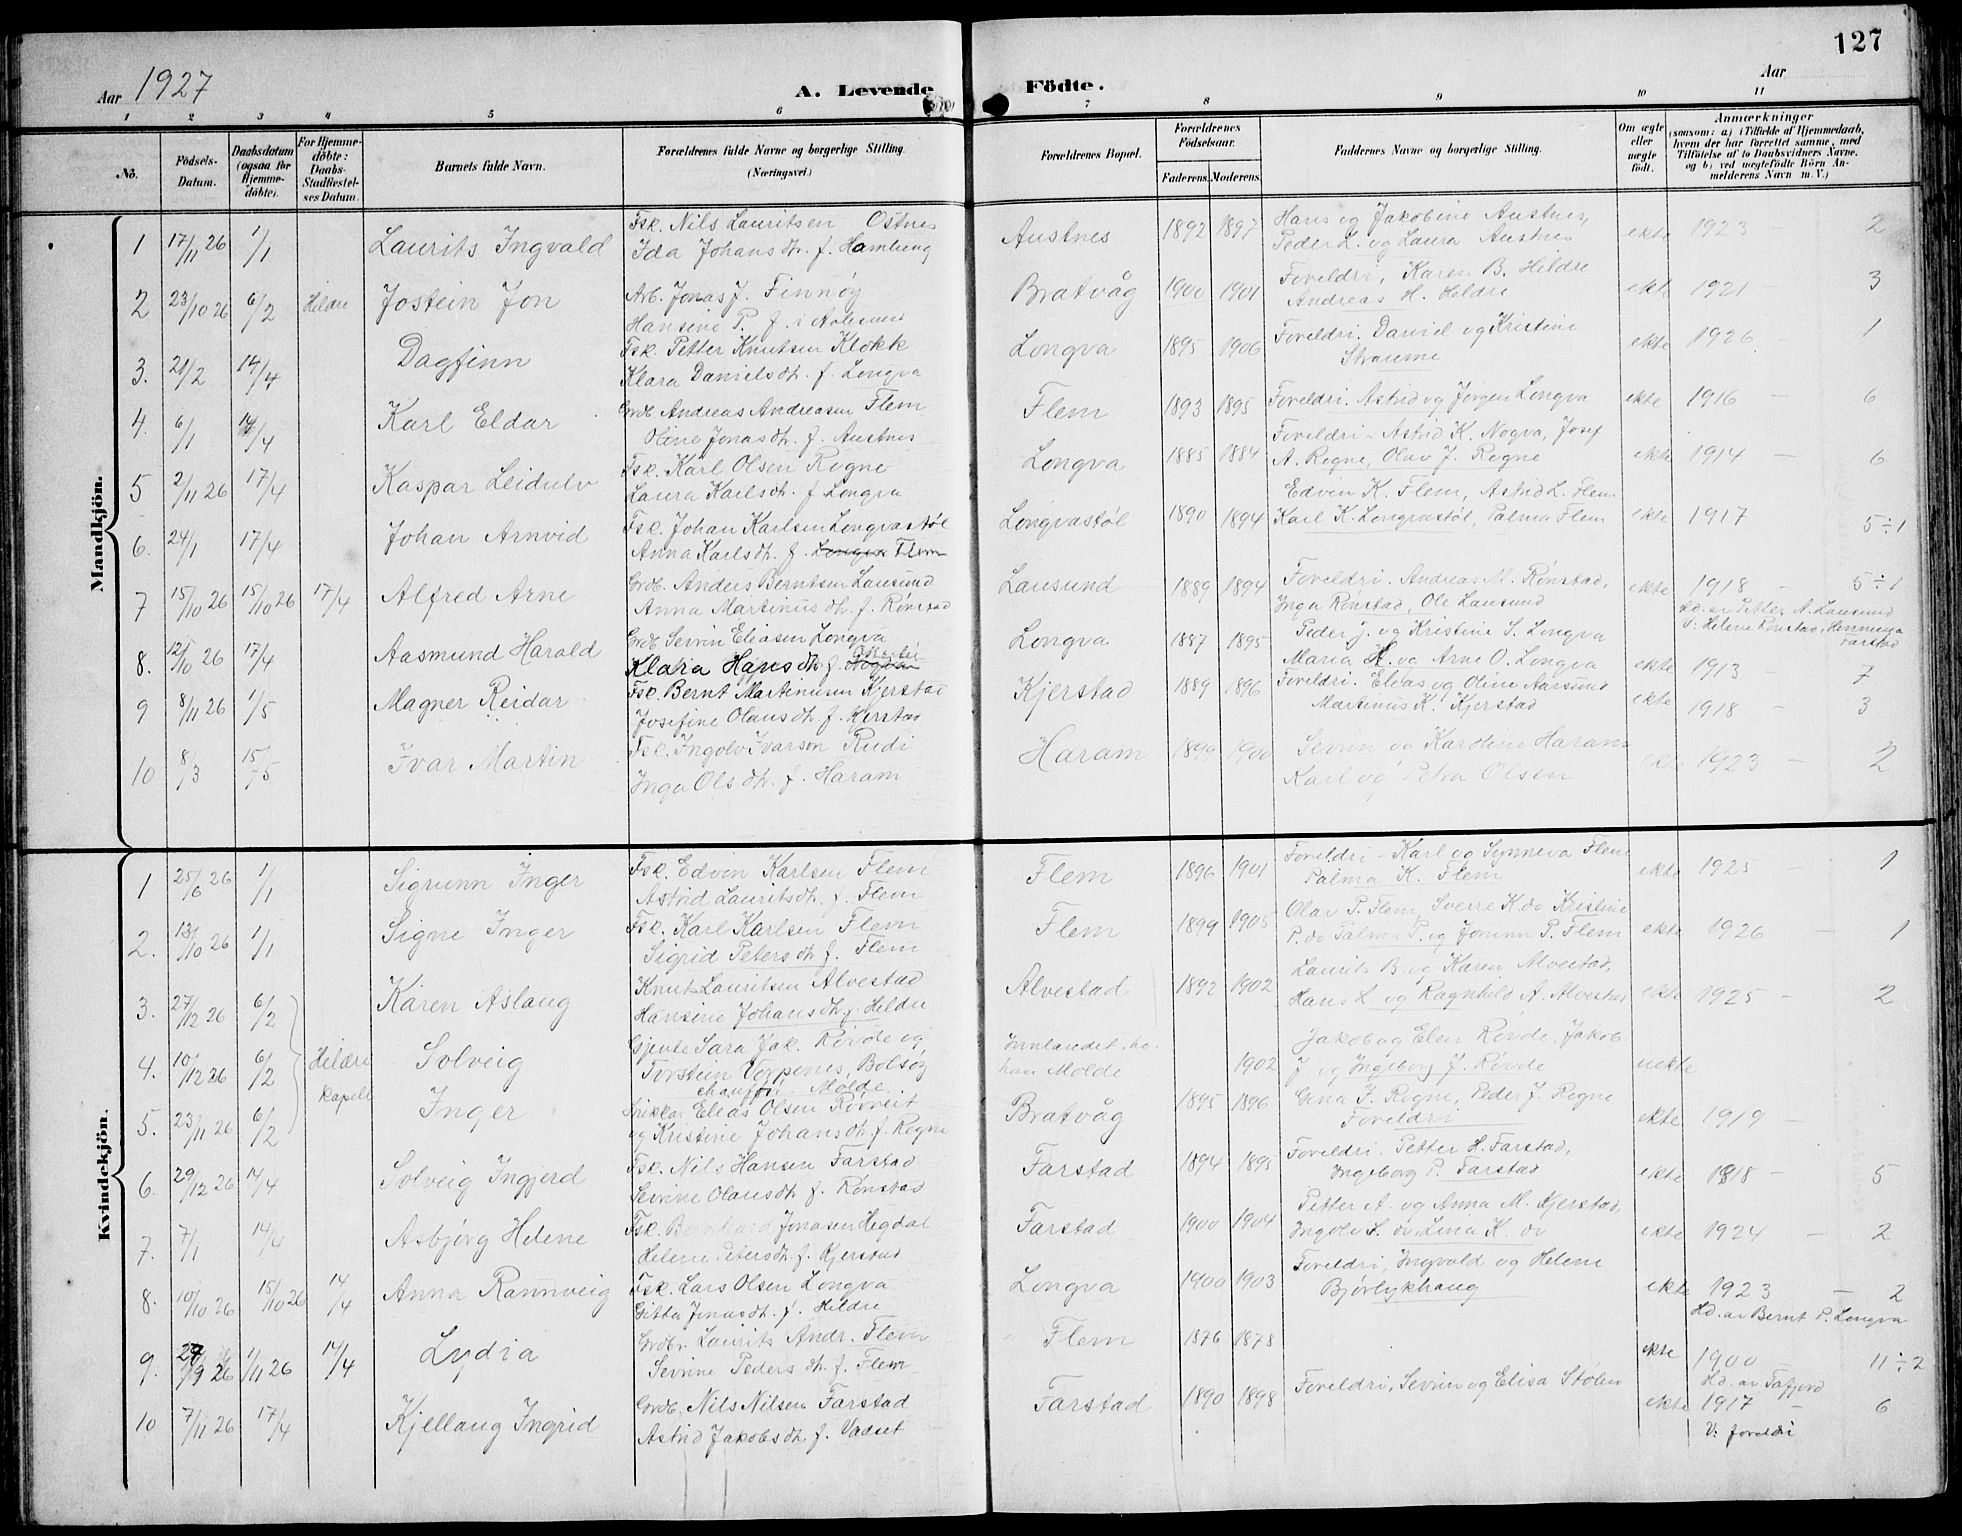 127
Aar 1927
A. Levende Födte.
Aar
1 2 3 4 5 6 7 8 9 10 11
No.
Födsels-Datum.
Daabsdatum (ogsaa for Hjemmedöbte).
For Hjemmedöbte: Daabs-Stadfæstelses Datum.
Barnets fulde Navn.
Forældrenes fulde Navne og borgerlige Stilling. (Næringsvei.)
Forældrenes Bopæl.
Forældrenes Födselsaar.
Faderens. Moderens.
Faddernes Navne og borgerlige Stilling.
Om ægte eller uægte födt.
Anmærkninger
(saasom: a) i Tilfælde af Hjemmedaab, hvem der har forrettet samme, med Tilföielse af to Daabsvidners Navne, og b) ved uægtefödte Börn Anmelderens Navn m. V.)
Mandkjön.
1 17/11 26 1/1 Laurits Ingvald Fsk. Nils Lauritsen Ostnes Austnes 1892 1897 Hans og Jakobine Austnes, ekte 1923 2
Ida Johansdh. f. Hamburg Peder L. og Laura Austnes
2 23/10 26 6/2 Hildre Jostein Jon Arb. Jonas J. Finnöy Bratvåg 1900 1901 Foreldri, Karen B. Hildre ekte 1921 - 3
Hansine P. f. i Aalesund Andreas H. Heldre
3. 21/2 14/4 Dagfinn Fsk. Petter Knutsen Klokk Longva 1895 1906 Foreldri. Daniel og Kristine ekte 1926 - 1
Klara Danielsdh. f. Longva Straume
4. 6/1 14/4 Karl Eldar Grdb. Andreas Andreasen Flem Flem 1893 1895 Foreldri. Astrid og Jörgen Longva ekte 1916 - 6
Oline Jonasdh. f. Austnes
5 2/11 26 17/4 Kaspar Leidulv Fsk. Karl Olsen Rogne Longva 1885 1884 Foreldri - Astrid K. Nogva, Josef ekte 1914 - 6
Laura Karlsdh. f. Longva A. Rogne, Olav J. Rogne
6. 24/1 17/4 Johan Arnvid Fsk. Johan Karlsen Longvastöl Longvastöl 1890 1894 Edvin K. Flem, Astrid L. Flem ekte 1917 5÷1
Anna Karlsdh. f. Longva Flem Karl K. Longvastöl, Palma Flem
7 15/10 26 15/10 26 17/4 Alfred Arne Grdb. Anders Berntsen Lausund Lausund 1889 1894 Foreldri. Andreas M. Rönstad, ekte 1918 - 5÷1
Anna Martinusdh. f. Rönstad Inga Rönstad, Ole Lausund Hd. av Petter A. Lausund
V: Helene Rönstad, Henninga Farstad
8. 12/10 26 17/4 Aasmund Harald Grdb Sevrin Eliasen Longva Longva 1887 1895 Peder J. og Kristine S. Longva ekte 1913 - 7
Klara Hansdh. f. Nogva Maria H. og Arne O. Longva
9 8/11 26 1/5 Magner Reidar Fsk. Bernt Martinusen Kjerstad Kjerstad 1889 1896 Foreldri. Elias og Oline Aarsund ekte 1918 - 3
Josefine Olausdh. f. Kjerstad Martinus K. Kjerstad
10 8/3 15/5 Ivar Martin Fsk. Ingolv Ivarson Rudi Haram 1899 1900 Sevrin og Karoline Haram ekte 1923 - 2
Inga Olsdh. f. Haram Karl og Petra Olsen
Kvindekjön.
1 25/6 26 1/1 Sigrunn Inger Fsk. Edvin Karlsen Flem Flem 1896 1901 Foreldri - Karl og Synneva Flem ekte 1925 - 1
Astrid Lauritsdh. f. Flem Palma K. Flem
2. 13/10 26 1/1 Signe Inger Fsk. Karl Karlsen Flem Flem 1899 1905 Olav P. Flem, Sverre K. do Kristine ekte 1926 - 1
Sigrid Petersdh f. Flem P. do Palma P. og Jorunn P. Flem
3. 27/12 26 6/2 Karen Aslaug Knut Lauritsen Alvestad Alvestad 1892 1902 Laurits B. og Karen Alvestad, ekte 1925 - 2
Hansine Johansdh. f. Heldre Hans L. og Ragnhild A. Alvestad
4. 10/12 26 6/2 Hildre kapell Solveig Gjente Sara Jak. Rövde og Innlandet, ho 1902 Jakob og Elen Rövde, Jakob uekte
Torstein Vorpenes, Bolsöy han Molde J og Ingeborg J. Rövde
chaufför Molde
5. 23/11 26 6/2 Inger Snikkar Elias Olsen Rövreit Bratvåg 1895 1896 Gina J. Rogne, Peder J. Rogne ekte 1919 -
og Kristine Johansdh. f. Rogne Foreldri
6. 29/12 26 14/4 Solveig Ingjerd Fsk. Nils Hansen Farstad Farstad 1894 1895 Foreldri. Petter H. Farstad, ekte 1918 - 5
Sevrine Olausdh. f. Rönstad Ingeborg P. Farstad
7. 7/1 14/4 Asbjörg Helene Fsk. Bernhard Jonasen Hegdal Farstad 1900 1904 Petter A. og Anna M. Kjerstad, ekte 1924 - 2
Helene Petersdh f. Kjerstad Ingolv S. do, Lina K. do
8. 10/10 26 15/10 26 14/4 Anna Rannveig Fsk. Lars Olsen Longva Longva 1900 1903 Foreldri, Ingvald og Helene ekte 1923 - 2
Gitta Jonasdh. f. Hildre Björlykhaug Hd. av Bernt P. Longva
9. 27/9 26 1/11 26 14/4 Lydia Grdbr. Laurits Andr. Flem Flem 1876 1878 ekte 1900 11÷2
Sevrine Pedersdh. f. Flem Hd. av Tafjord
10 7/11 26 17/4 Kjellaug Ingrid Grdb. Nils Nilsen Farstad Farstad 1890 1898 Foreldri, Sevrin og Elisa Stölen ekte 1917 - 6
Astrid Jakobsdh. f. Vadset V: foreldri